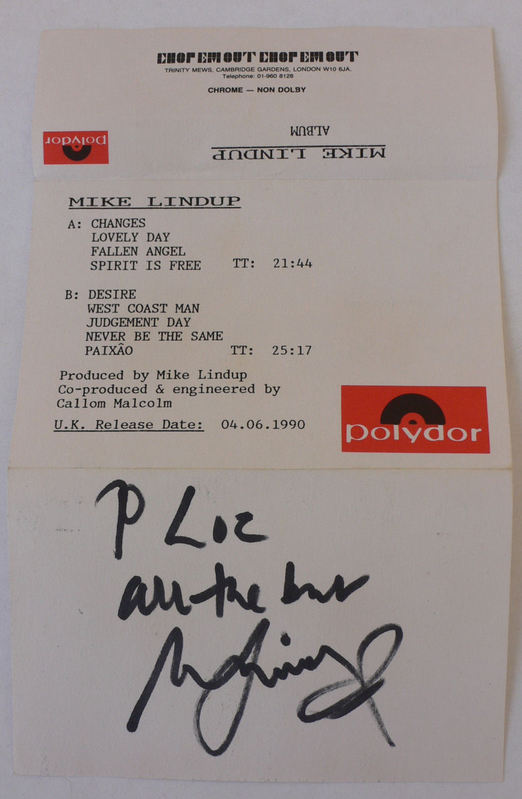 CHOP EM OUT CHOP EM OUT
TRINITY MEWS, CAMBRIDGE GARDENS, LONDON W10 6JA.
Telephone: 01-960 8128
CHROME — NON DOLBY
polydor
MIKE LINDUP
ALBUM
MIKE LINDUP
A: CHANGES
LOVELY DAY
FALLEN ANGEL
SPIRIT IS FREE TT: 21:44
B: DESIRE
WEST COAST MAN
JUDGEMENT DAY
NEVER BE THE SAME
PAIXÃO TT: 25:17
Produced by Mike Lindup
Co-produced & engineered by
Callom Malcolm
U.K. Release Date: 04.06.1990
polydor
all the best